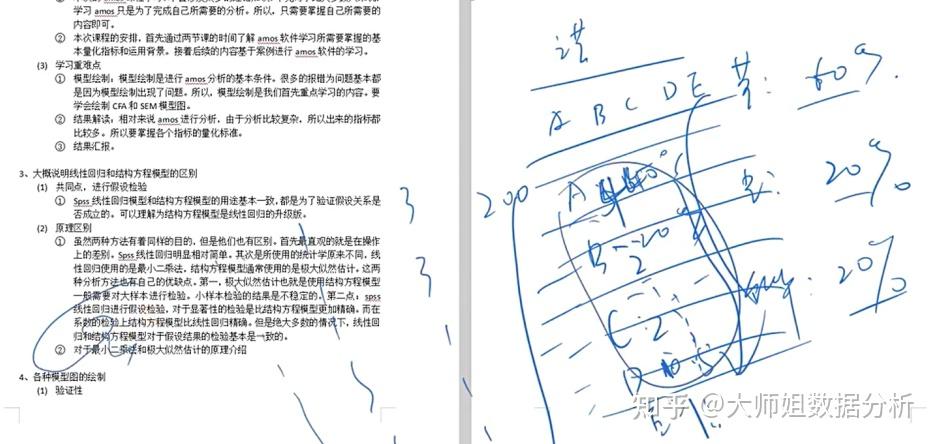 学习 amos 只是为了完成自己所需要的分析。所以，只需要掌握自己所需要的
内容即可。
② 本次课程的安排，首先通过两节课的时间了解 amos 软件学习所需要掌握的基
本量化指标和运用背景。接着后续的内容基于案例进行 amos 软件的学习。
(3) 学习重难点
① 模型绘制：模型绘制是进行 amos 分析的基本条件。很多的报错为问题基本都
是因为模型绘制出现了问题。所以，模型绘制是我们首先重点学习的内容。要
学会绘制 CFA 和 SEM 模型图。
② 结果解读：相对来说 amos 进行分析，由于分析比较复杂，所以出来的指标都
比较多。所以要掌握各个指标的量化标准。
③ 结果汇报。
3、大概说明线性回归和结构方程模型的区别
(1) 共同点，进行假设检验
① Spss 线性回归模型和结构方程模型的用途基本一致，都是为了验证假设关系是
否成立的。可以理解为结构方程模型是线性回归的升级版。
(2) 原理区别
① 虽然两种方法有着同样的目的，但是他们也有区别。首先最直观的就是在操作
上的差别。Spss 线性回归明显相对简单。其次是所使用的统计学原来不同，线
性回归使用的是最小二乘法，结构方程模型通常使用的是极大似然估计。这两
种分析方法也有自己的优缺点。第一，极大似然估计也就是使用结构方程模型
一般需要对大样本进行检验。小样本检验的结果是不稳定的。第二点：spss
线性回归进行假设检验，对于显著性的检验是比结构方程模型更加精确。而在
系数的检验上结构方程模型比线性回归精确。但是绝大多数的情况下，线性回
归和结构方程模型对于假设结果的检验基本是一致的。
② 对于最小二乘法和极大似然估计的原理介绍
4、各种模型图的绘制
(1) 验证性
A B C D E
60%
200
20%
20%
知乎 @大师姐数据分析